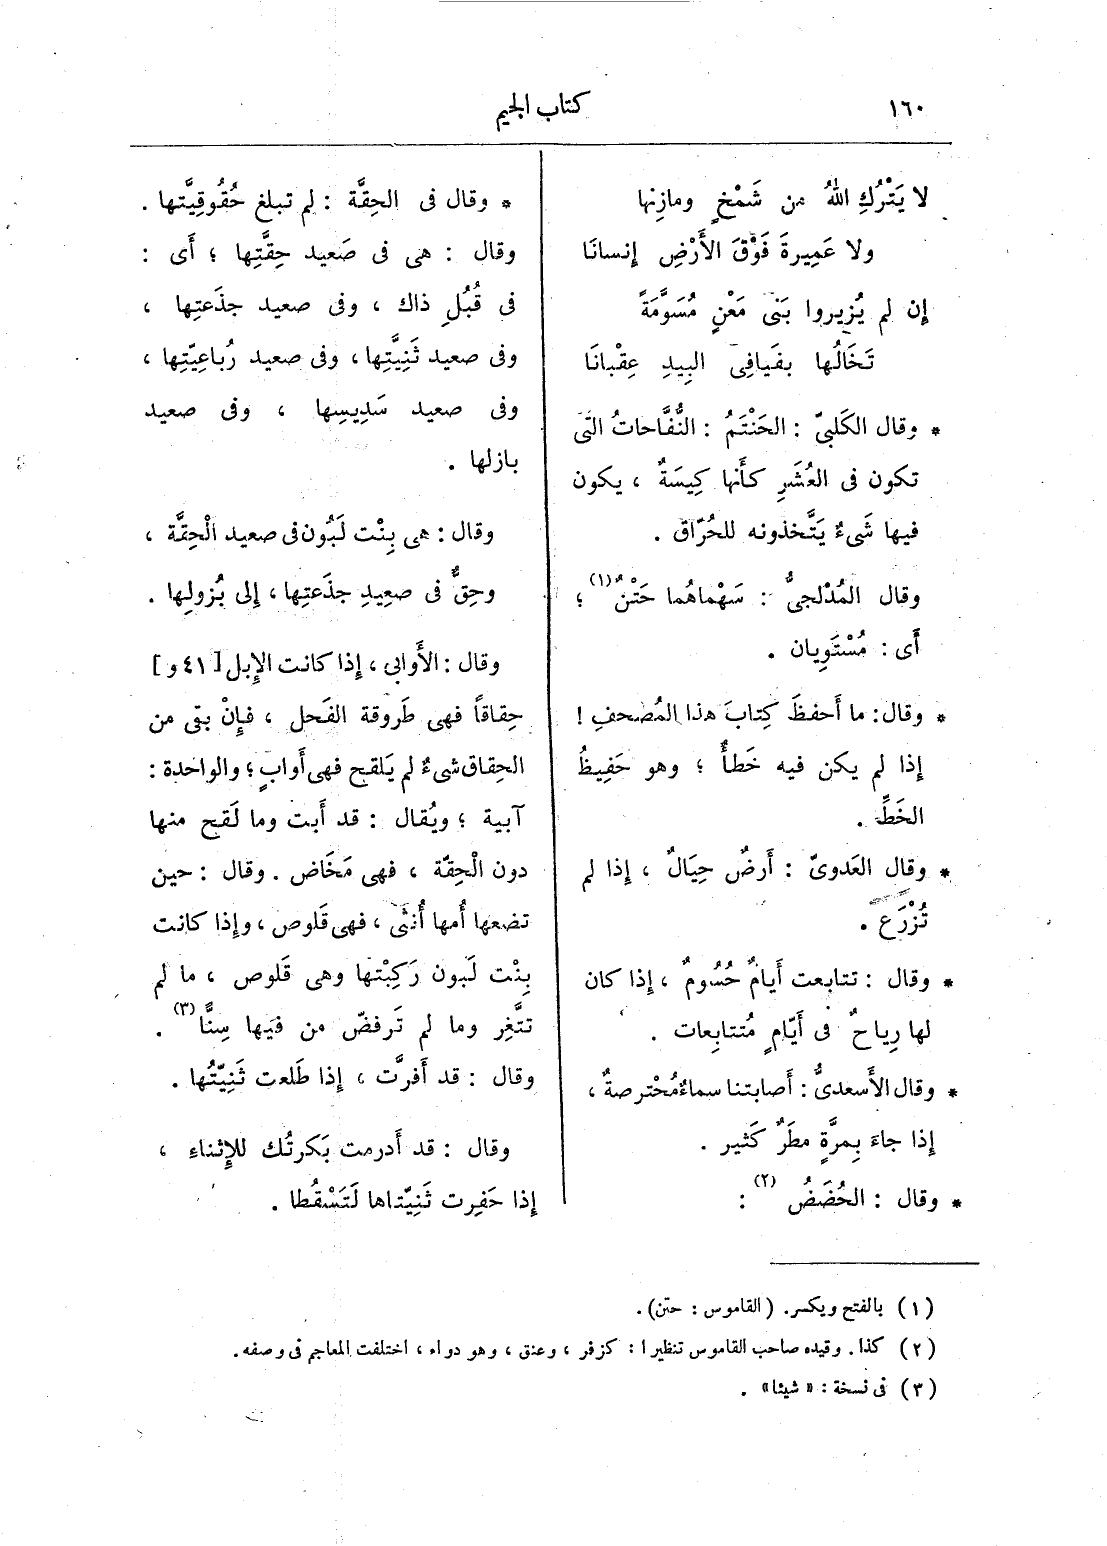 ١٦٠
كتاب الجيم
لا يَتْرُكِ اللهُ من شَمْخٍ ومازِنِها
ولا عَمِيرةَ فَوْقَ الأَرْضِ إنسانَا
إن لم يُزِيروا بَنى مَعْنٍ مُسَوَّمَةً
تَخَالُها بفَيافِى البِيدِ عِقْبانَا
* وقال الكَلبىّ : الحَنْتَمُ : النُّفَّاحاتُ التى
تكون فى العُشَرِ كأَنها كِيسَةٌ ، يكون
فيها شَىءٌ يَتَّخذونه للحُرّاق .
وقال المُدْلجىُّ : سَهْماهُما حَتْنٌ (١) ؛
أَى : مُسْتَوِيان .
* وقال: ما أَحفظَ كِتابَ هذا المُصحفِ !
إذا لم يكن فيه خَطأٌ ؛ وهو حَفِيظُ
الخَطِّ .
* وقال العَدوىّ : أَرضٌ حِيَالٌ ، إذا لم
تُزْرَع .
* وقال : تتابعت أَيامٌ حُسُومٌ ، إذا كان
لها رِياحٌ فى أَيّامٍ مُتتابِعات .
* وقال الأَسعدىُّ : أَصابتنا سماءٌ مُحْترِصةٌ ،
إذا جاءَ بِمرَّةٍ مطرٌ كَثير .
* وقال : الحُضَضُ (٢) :
* وقال فى الحِقَّة : لم تبلغ حُقُوقِيَّتها .
وقال : هى فى صَعيد حِقَّتِها ؛ أَى :
فى قُبُلِ ذاك ، وفى صعيد جذَعتِها ،
وفى صعيد ثَنِيَّتِها ، وفى صعيد رُباعِيّتِها ،
وفى صعيد سَدِيسِها ، وفى صعيد
بازلها .
وقال : هى بِنْت لَبُون فى صعيد الْحِقَّة ،
وحِقٌّ فى صعِيدِ جذَعتِها ، إلى بُزولِها .
وقال : الأَوابى ، إذا كانت الإِبل [ ٤١ و ]
حِقاقاً فهى طَروقة الفَحل ، فإنْ بقى من
الحِقاق شىءٌ لم يَلقح فهى أَوابٍ ؛ والواحدة :
آبية ؛ ويُقال : قد أَبت وما لَقح منها
دون الْحِقّة ، فهى مَخَاض . وقال : حين
تضعها أُمها أُنثَى ، فهى قَلوص ، وإذا كانت
بِنْت لَبون رَكِبْتها وهى قَلوص ، ما لم
تتَّغِر وما لم تَرفضّ من فيَها سِنًّا (٣) .
وقال : قد أَفرَّت ، إذا طَلعت ثَنِيّتُها .
وقال : قد أَدرمت بَكرتُك للإِثناءِ ،
إذا حَفِرت ثَنِيّتاها لَتَسْقُطا .
(١) بالفتح ويكسر. (القاموس : حتن) .
(٢) كذا. وقيده صاحب القاموس تنظيرا : كزفر ، وعنق ، وهو دواء ، اختلفت المعاجم فى وصفه.
(٣) فى نسخة : « شيئا» .